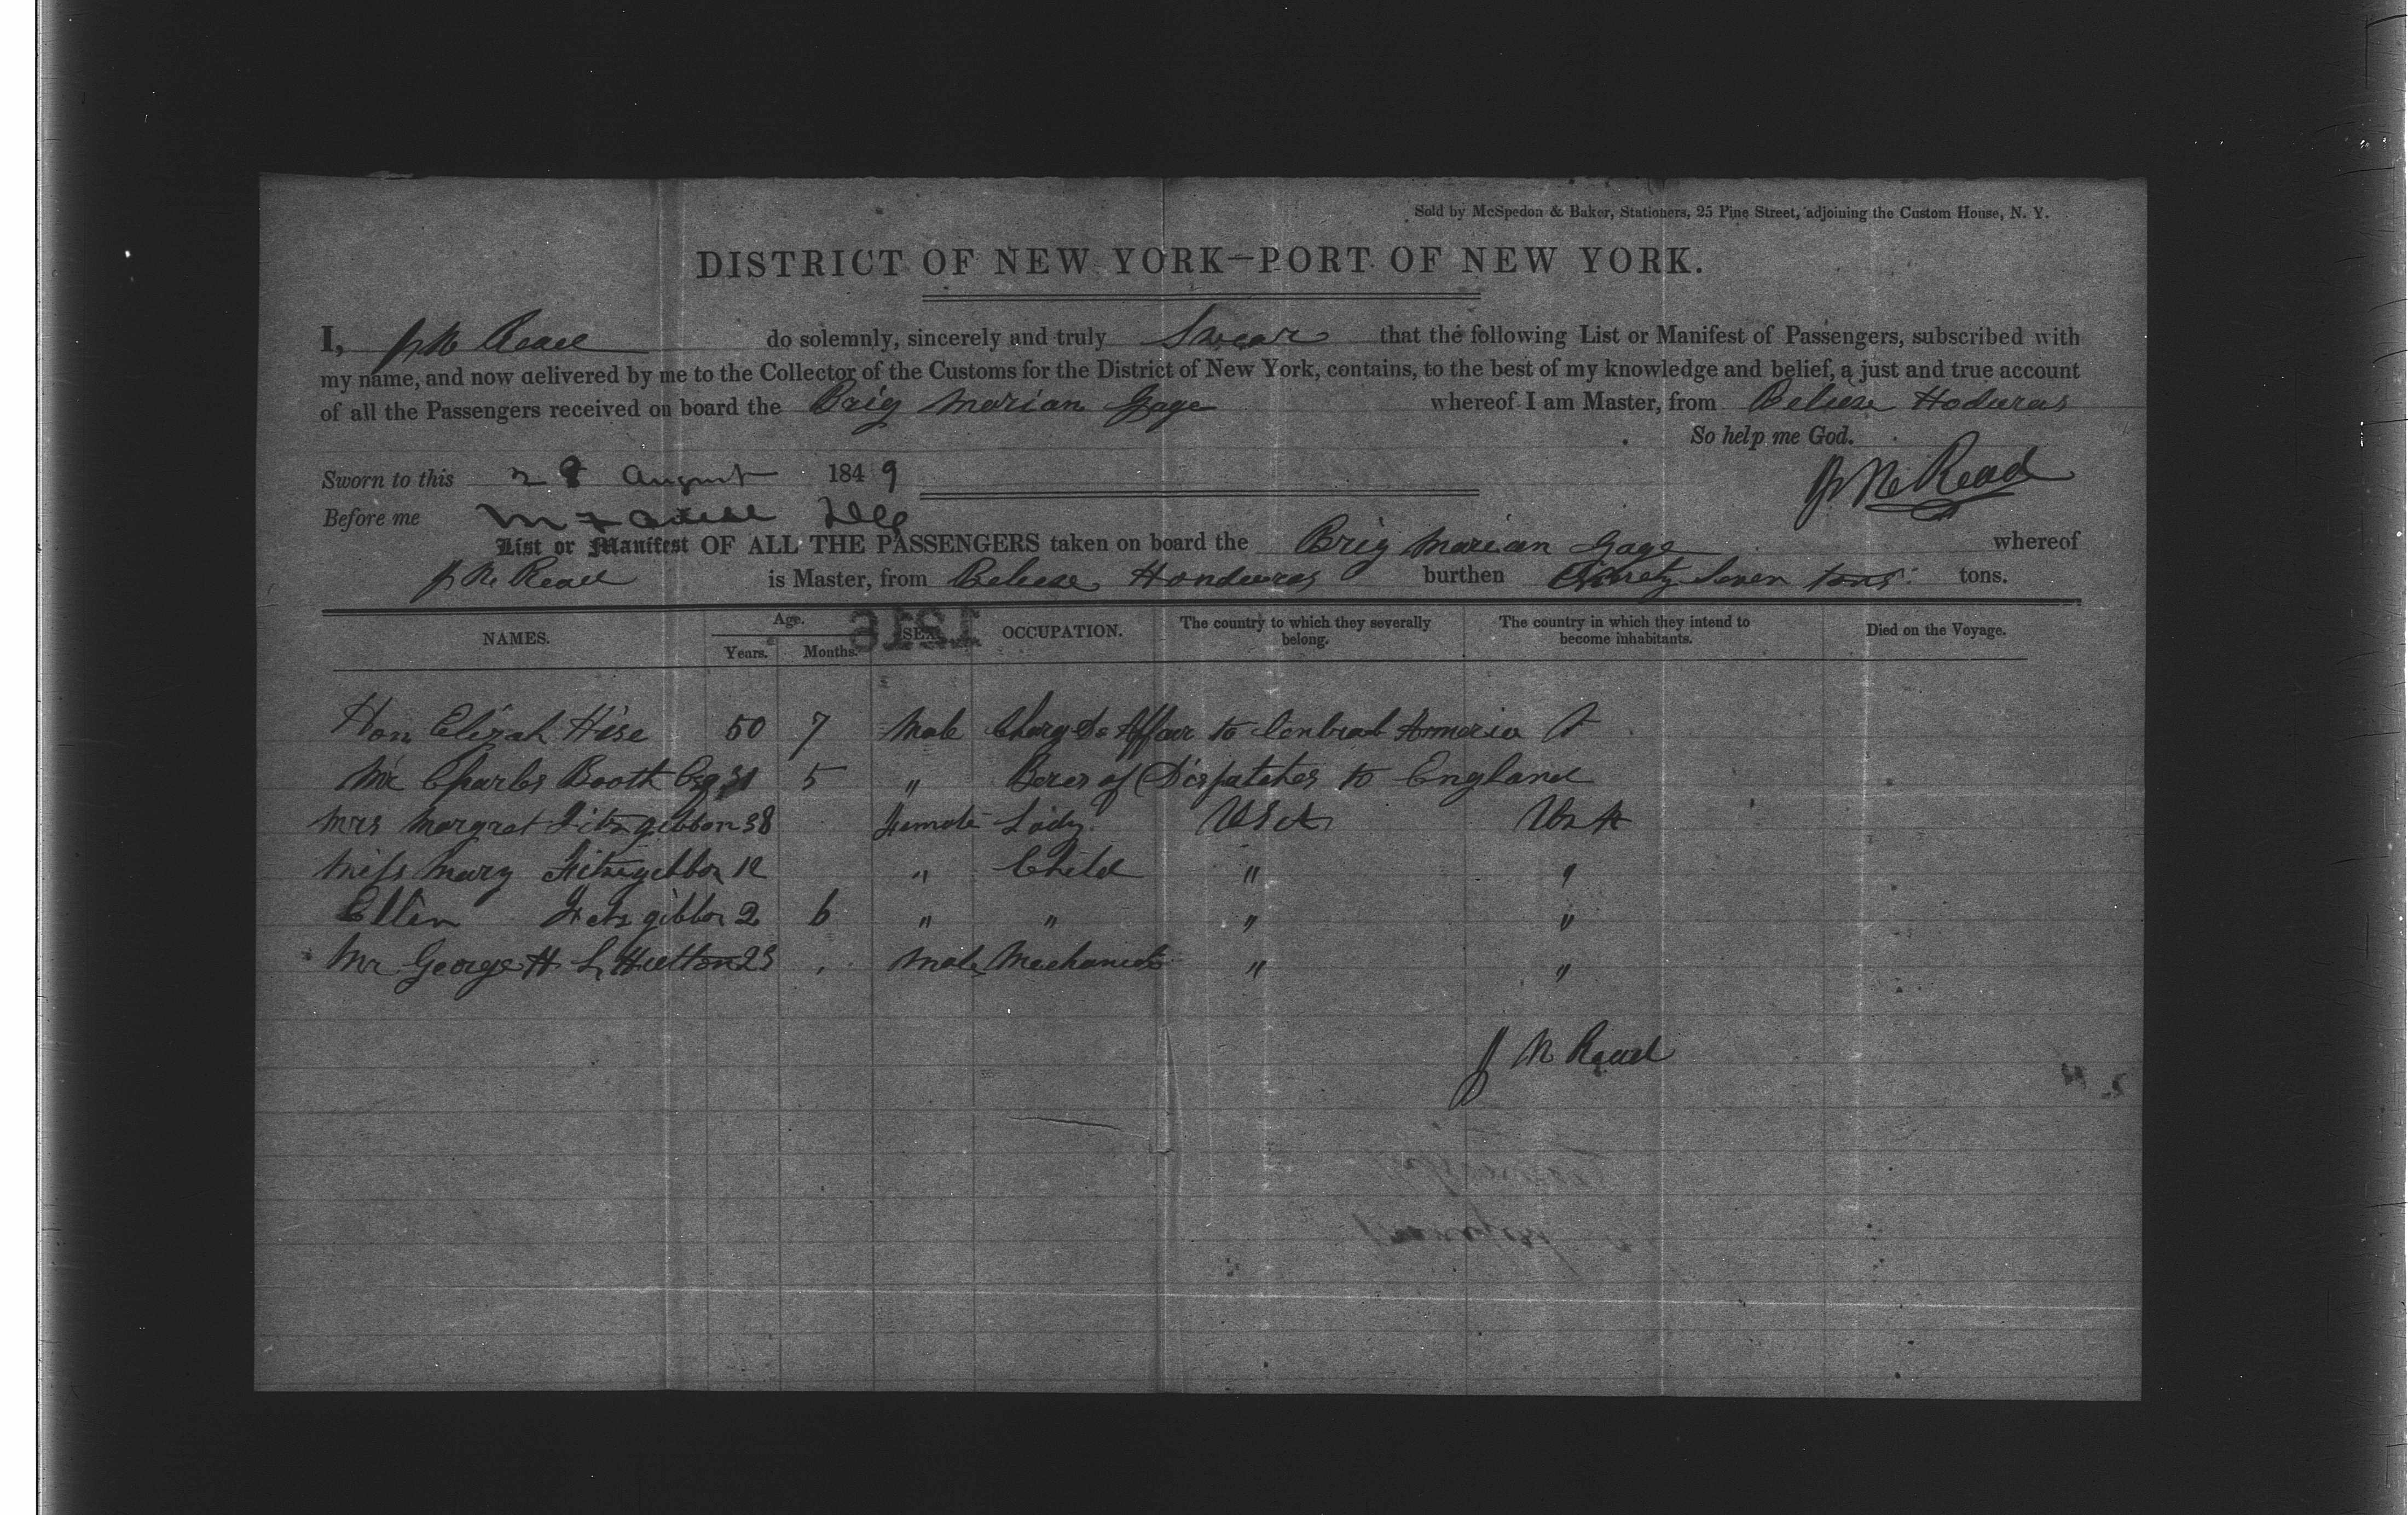 Sold by McSpedon & Baker, Stationers, 25 Pine Street, adjoining the Custom House, N. Y.
DISTRICT OF NEW YORK—PORT OF NEW YORK.
I, J N Read do solemnly, sincerely and truly Swear that the following List or Manifest of Passengers, subscribed with
my name, and now delivered by me to the Collector of the Customs for the District of New York, contains, to the best of my knowledge and belief, a just and true account
of all the Passengers received on board the Brig Marian Gage whereof I am Master, from Beliese Hoduras
So help me God.
Sworn to this 28 August 1849
J N Read
Before me
List or Manifest OF ALL THE PASSENGERS taken on board the Brig Marian Gage whereof
J N Read is Master, from Beliese Honduras burthen Ninety Seven tons tons.
NAMES. Age. Years. Months. SEX. OCCUPATION. The country to which they severally belong. The country in which they intend to become inhabitants. Died on the Voyage.
Hon Elizah Hise 50 7 Male Charg De Affair to Central America
Mr Charles Booth Esq 31 5 " Berer of Dispatches to England
Mrs Margret Fitzgibbon 38 Female Lady USA USA
Miss Mary Fitzgibbon 12 " Child " "
Ellen Fitzgibbon 2 6 " " " "
Mr George H L Hutton 23 Male Mechanick " "
J N Read